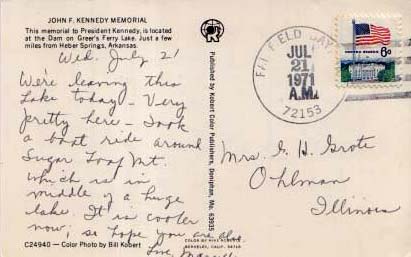 JOHN F. KENNEDY MEMORIAL
This memorial to President Kennedy, is located
at the Dam on Greer's Ferry Lake. Just a few
miles from Heber Springs, Arkansas.
Wed. July 21
We're leaving this
Lake today - Very
pretty here - Took
a boat ride around
Sugar Loaf Mt.
which is in
middle of a huge
lake. It is cooler
now, so hope you are also.
Love,
C24940 — Color Photo by Bill Kobert
Published by Kobert Color Publishers, Doniphan, Mo. 63935
COLOR BY MIKE ROBERTS
BERKELEY, CALIF. 94710
JUL
21
1971
A.M.
72153
6c
Mrs. G. H. Grote
Ohlman
Illinois